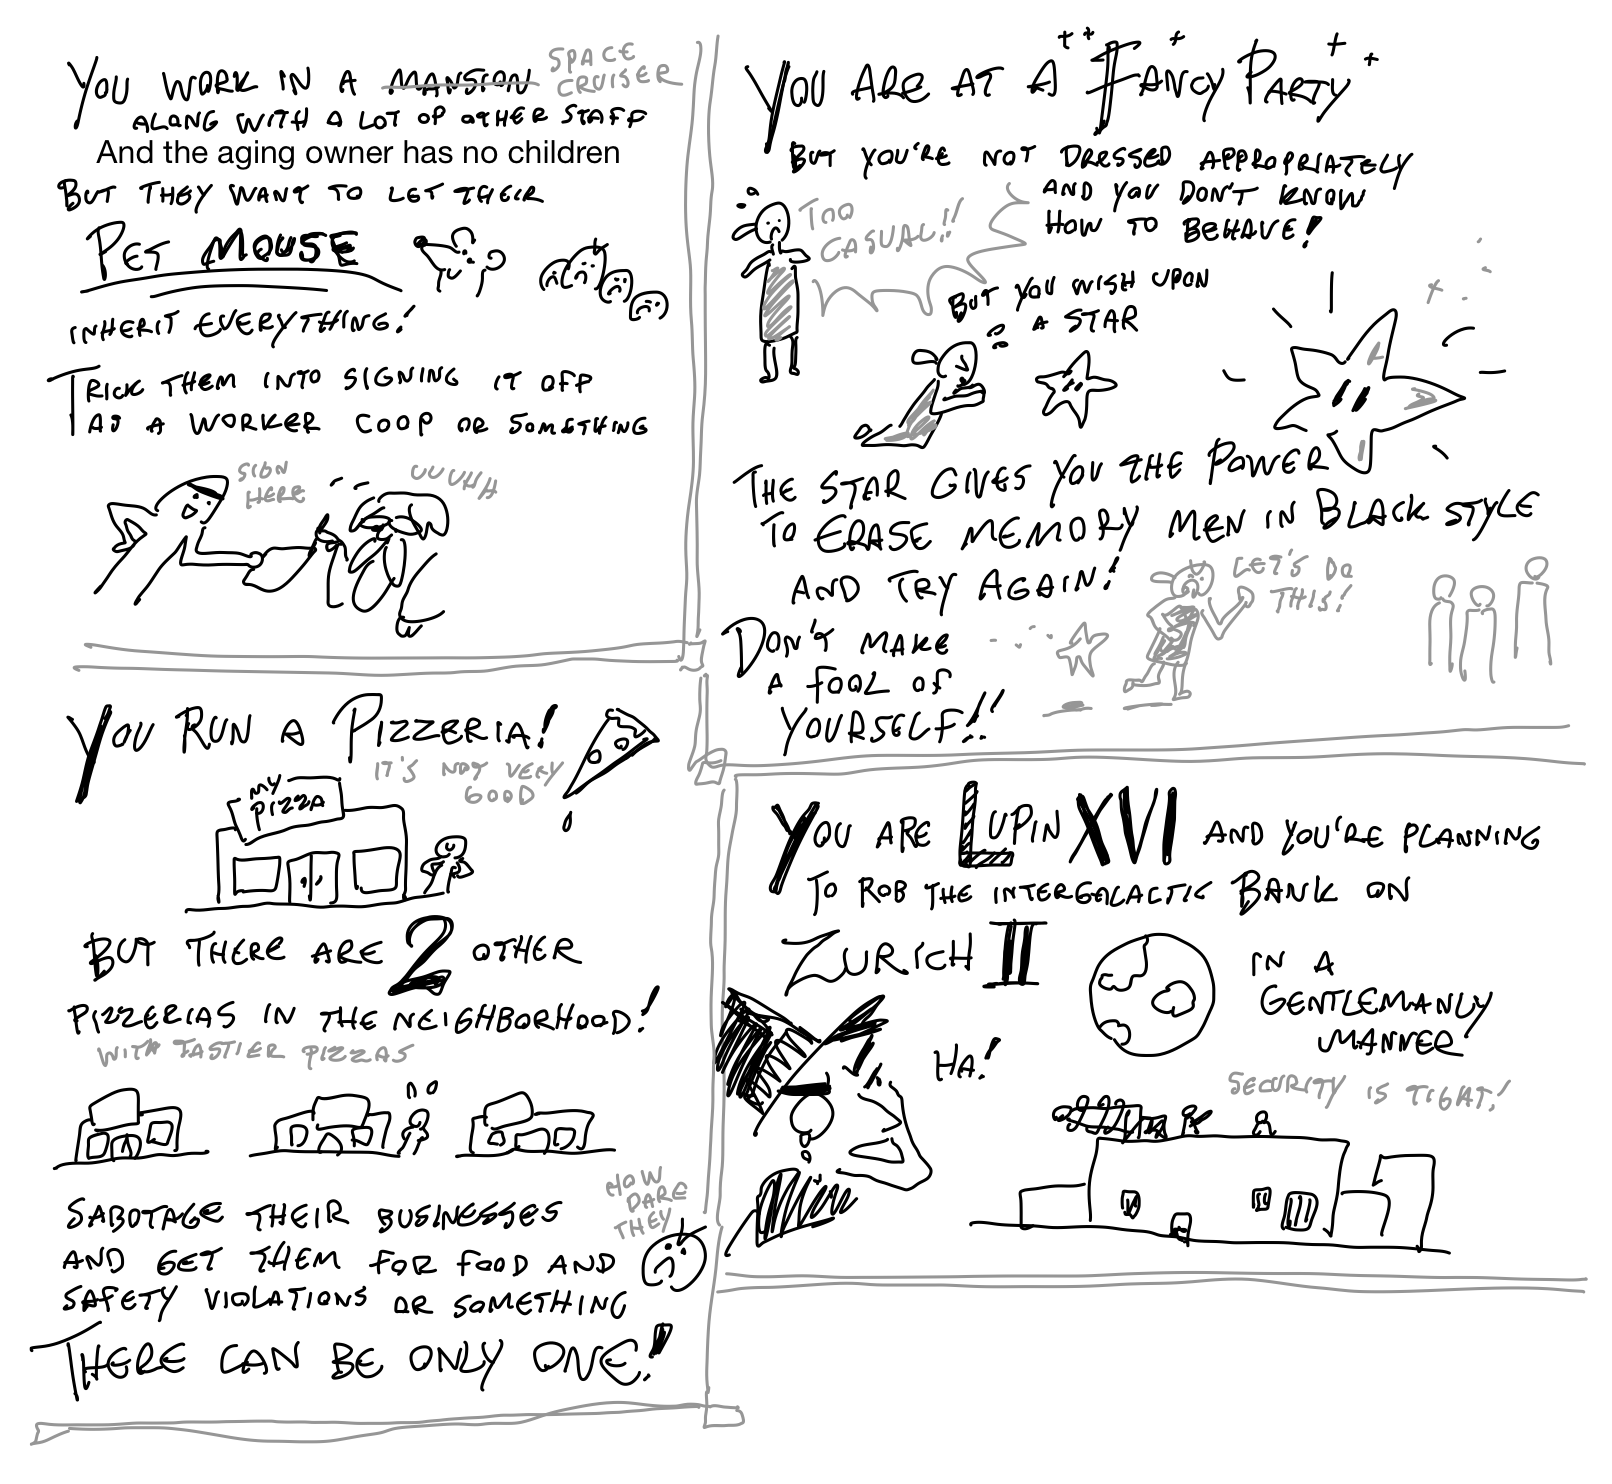 YOU WORK IN A MANSION SPACE CRUISER
ALONG WITH A LOT OF OTHER STAFF
And the aging owner has no children
BUT THEY WANT TO LET THEIR
PET MOUSE
INHERIT EVERYTHING!
TRICK THEM INTO SIGNING IT OFF
AS A WORKER COOP OR SOMETHING
SIGN HERE
UUUHH
YOU ARE AT A FANCY PARTY
BUT YOU'RE NOT DRESSED APPROPRIATELY
AND YOU DON'T KNOW
HOW TO BEHAVE!
TOO
CASUAL!!
BUT YOU WISH UPON
A STAR
THE STAR GIVES YOU THE POWER
TO ERASE MEMORY MEN IN BLACK STYLE
AND TRY AGAIN!
LET'S DO
THIS!
DON'T MAKE
A FOOL OF
YOURSELF!!
YOU RUN A PIZZERIA!
IT'S NOT VERY
GOOD
MY
PIZZA
BUT THERE ARE 2 OTHER
PIZZERIAS IN THE NEIGHBORHOOD!
WITH TASTIER PIZZAS
SABOTAGE THEIR BUSINESSES
AND GET THEM FOR FOOD AND
SAFETY VIOLATIONS OR SOMETHING
HOW
DARE
THEY
THERE CAN BE ONLY ONE!
YOU ARE LUPIN XVI AND YOU'RE PLANNING
TO ROB THE INTERGALACTIC BANK ON
ZURICH II
IN A
GENTLEMANLY
MANNER
HA!
SECURITY IS TIGHT!